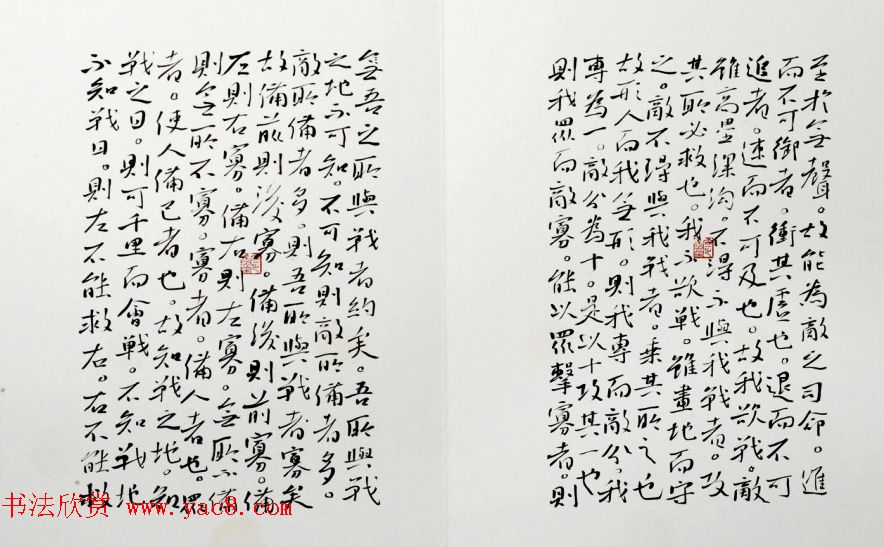 至於無聲。故能為敵之司命。進
而不可御者。衝其虛也。退而不可
追者。速而不可及也。故我欲戰。敵
雖高壘深沟。不得不與我戰者。攻
其所必救也。我不欲戰。雖畫地而守
之。敵不得與我戰者。乘其所之也
故形人而我無形。則我專而敵分。我
專為一。敵分為十。是以十攻其一也
則我眾而敵寡。能以眾擊寡者。則
無吾之所與戰者約矣。吾所與戰
之地不可知。不可知則敵所備者多。
敵所備者多。則吾所與戰者寡矣
故備前則後寡。備後則前寡。備
左則右寡。備右則左寡。無所不備
則無所不寡。寡者。備人者也。眾
者。使人備己者也。故知戰之地。知
戰之日。則可千里而會戰。不知戰地
不知戰日。則左不能救右。右不能救
书法欣赏 www.yac8.com